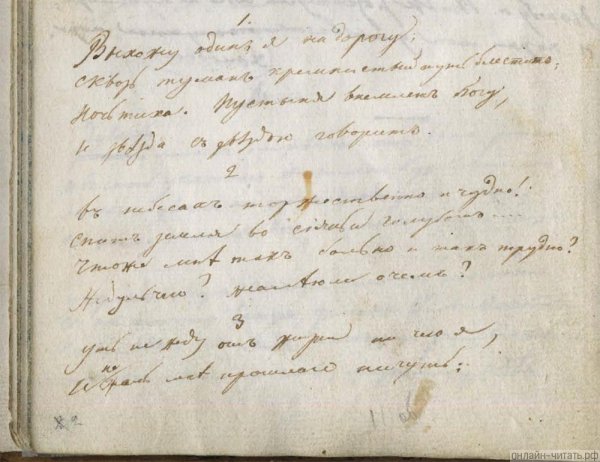 1.
Выхожу одинъ я на дорогу;
Сквозь туманъ кремнистый путь блеститъ;
Ночь тиха. Пустыня внемлетъ Богу,
И звѣзда съ звѣздою говоритъ.
2
Въ небесахъ торжественно и чудно!
Спитъ земля во сіяньи голубомъ...
Что же мнѣ такъ больно и такъ трудно?
Жду ль чего? жалѣю ли о чемъ?
3
Ужъ не жду отъ жизни ничего я,
И не жаль мнѣ прошлаго ничуть;
онлайн-читать.рф